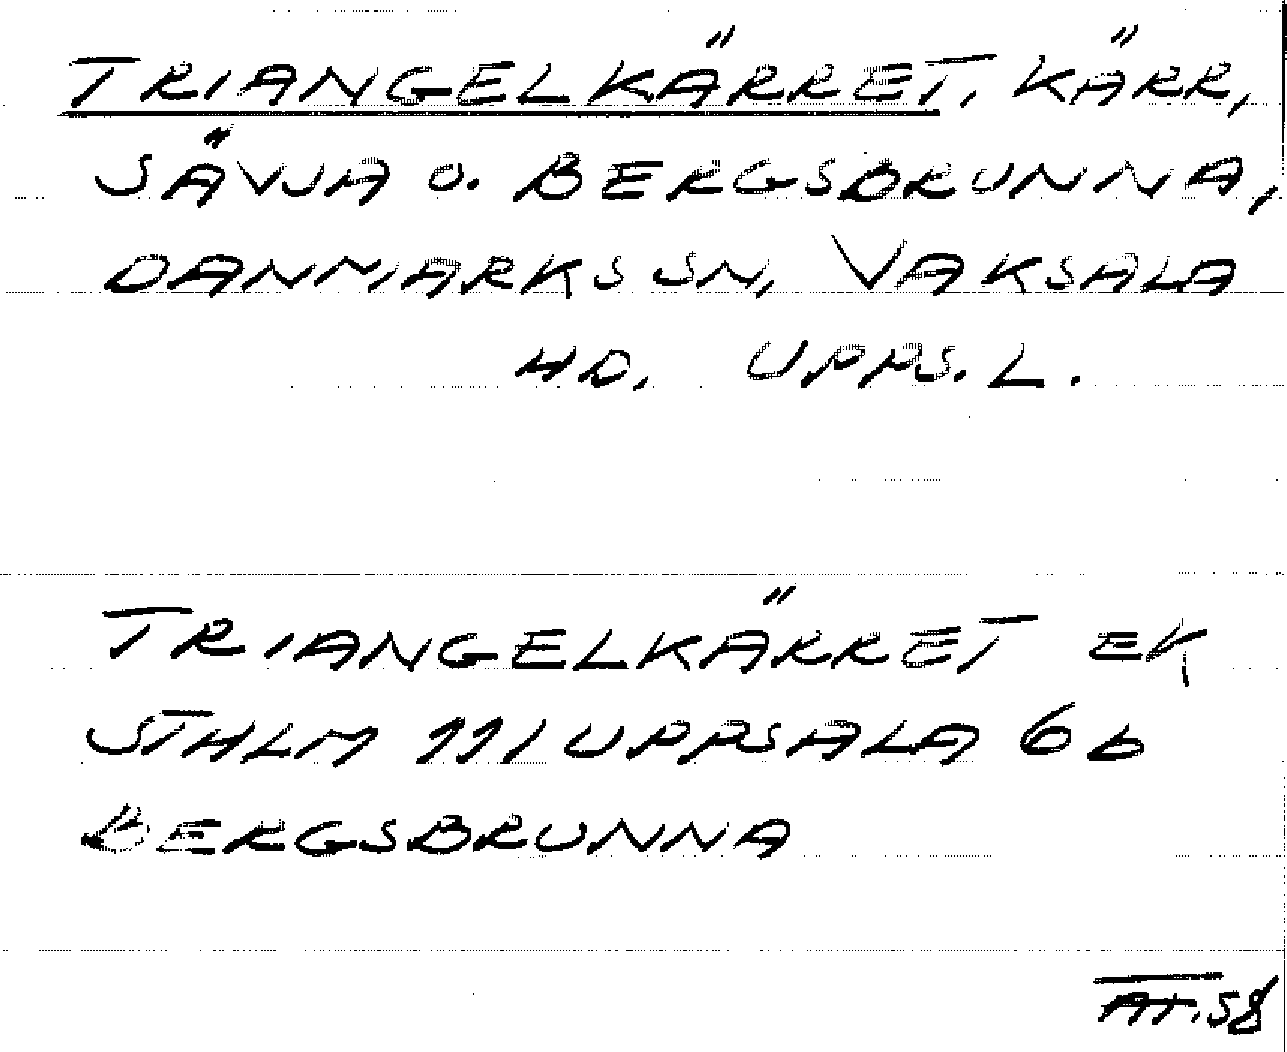 TRIANGELKÄRRET, KÄRR,
SÄVJA O. BERGSBRUNNA,
DANMARKS SN, VAKSALA
HD, UPPS. L.
TRIANGELKÄRRET EK
STHLM 111 UPPSALA 6b
BERGSBRUNNA
AT.58